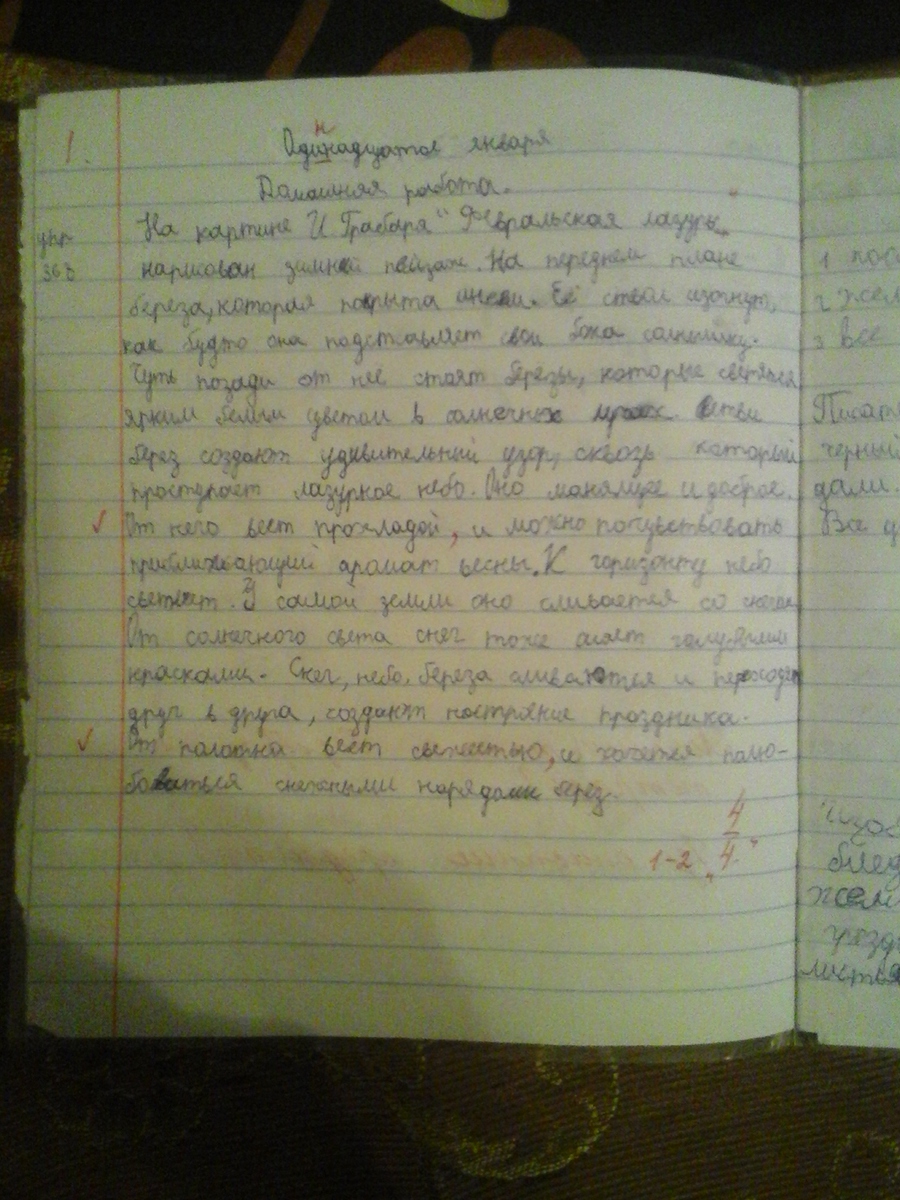 1.
н
Одинадцатое января
Домашняя работа.
На картине И Грабаря "Февральская лазурь"
упр
363
нарисован зимний пейзаж. На переднем плане
береза, которая покрыта инеем. Её ствол изогнут,
как будто она подставляет свои бока солнышку.
Чуть позади от нее стоят березы, которые светятся
ярким белым цветом в солнечных лучах. Ветви
берез создают удивительный узор, сквозь который
проступает лазурное небо. Оно манящее и доброе.
От него веет прохладой, и можно почувствовать
приближающий аромат весны. К горизонту небо
светлеет. У самой земли оно сливается со снегом
От солнечного света снег тоже сияет голубыми
красками. Снег, небо, береза сливаются и переходят
друг в друга, создают настроение праздника.
От полотна веет свежестью, и хочется полю-
боваться снежными нарядами берез.
4
1-2 „4."
1 пос
2 жел
3 Все
Писат
черный
дали.
Все
блед
жел
листья